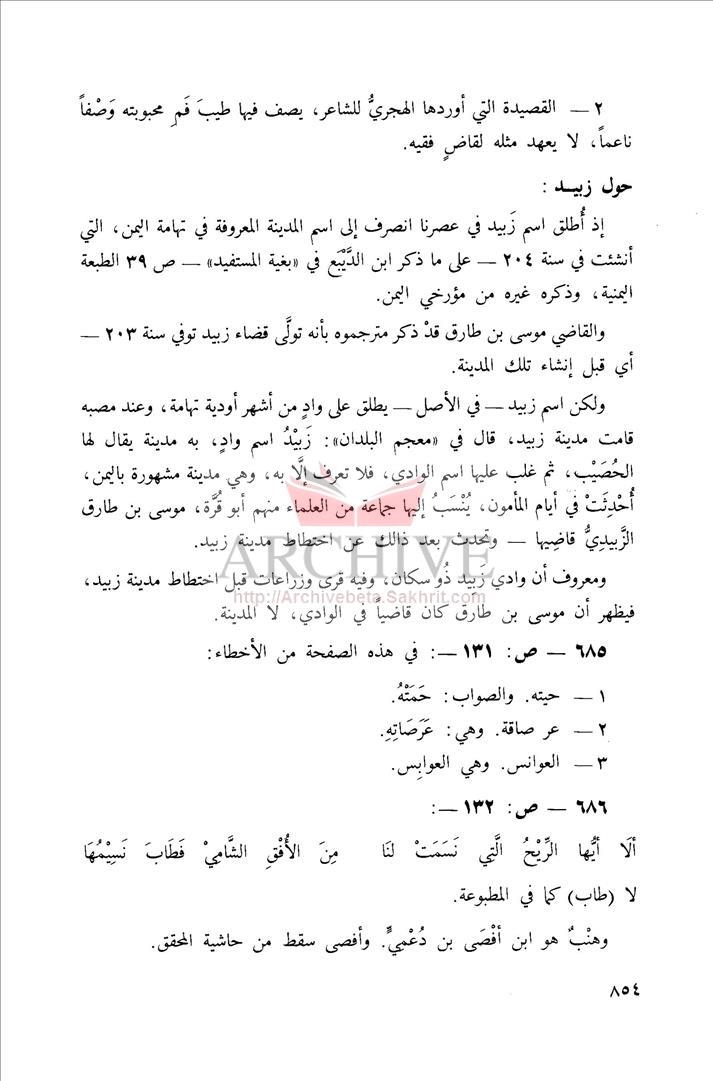 ٢ — القصيدة التي أوردها الهجريُّ للشاعر، يصف فيها طيبَ فَمِ محبوبته وَصْفاً
ناعماً، لا يعهد مثله لقاضٍ فقيه.
حول زبيـد :
إذ أُطلق اسم زَبيد في عصرنا انصرف إلى اسم المدينة المعروفة في تهامة اليمن، التي
أنشئت في سنة ٢٠٤ — على ما ذكر ابن الدَّيْبَع في «بغية المستفيد» — ص ٣٩ الطبعة
اليمنية، وذكره غيره من مؤرخي اليمن.
والقاضي موسى بن طارق قدْ ذكر مترجموه بأنه تولَّى قضاء زبيد توفي سنة ٢٠٣ —
أي قبل إنشاء تلك المدينة.
ولكن اسم زبيد — في الأصل — يطلق على وادٍ من أشهر أودية تهامة، وعند مصبه
قامت مدينة زبيد، قال في «معجم البلدان»: زَبيْدُ اسم وادٍ، به مدينة يقال لها
الحُصَيْب، ثم غلب عليها اسم الوادي، فلا تعرف إلَّا به، وهي مدينة مشهورة باليمن،
أُحْدِثَتْ في أيام المأمون، يُنْسَبُ إليها جماعة من العلماء منهم أبو قُرَّة، موسى بن طارق
الزَّبيدِيُّ قاضِيها — وتحدث بعد ذالك عن اختطاط مدينة زبيد.
ARCHIVE
ومعروف أن وادي زَبِيد ذُو سكان، وفيه قرى وزراعات قبل اختطاط مدينة زبيد،
http://Archivebeta.Sakhrit.com
فيظهر أن موسى بن طارق كان قاضياً في الوادي، لا المدينة.
٦٨٥ — ص: ١٣١ —: في هذه الصفحة من الأخطاء:
١ — حيته. والصواب: حَمَتْهُ.
٢ — عر صاقة. وهي: عَرَصَاتِهِ.
٣ — العوانس. وهي العوابِس.
٦٨٦ — ص: ١٣٢ —:
ألَا أيُّها الرِّيْحُ الَّتِي نَسَمَتْ لنَا مِنَ الأُفْقِ الشَّامِيْ فَطَابَ نَسِيْمُهَا
لا (طاب) كما في المطبوعة.
وهنْبٌ هو ابن أفْصَى بن دُعْمِيٍّ. وأفصى سقط من حاشية المحقق.
٨٥٤